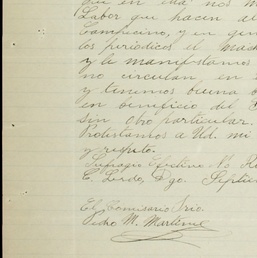 que en esta nos m
Labor que hacen al
Campesino, y en gen
los periodicos el Mach
y le manifestamos
no circulan en
y tenemos buena
en beneficio del
sin otro particular.
Protestamos a Ud. mi
y respeto.
Sufragio Efectivo No Re
C. Lerdo, Dgo. Septie
El Comisario Srio.
Pedro M. Martinez